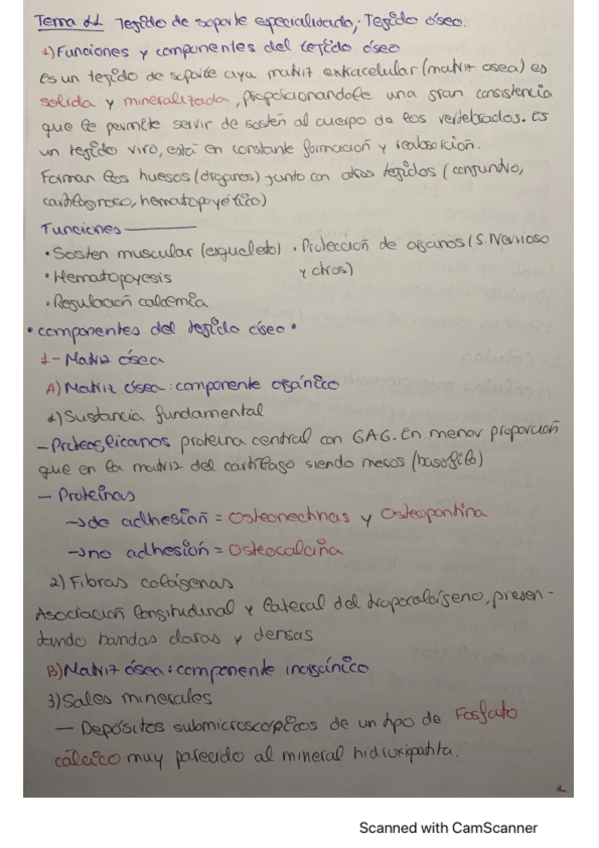 Tema 11 Tejido de soporte especializado; Tejido óseo.
1) Funciones y componentes del tejido óseo
Es un tejido de soporte cuya matriz extracelular (matriz osea) es
solida y mineralizada, proporcionandole una gran consistencia
que le permite servir de sostén al cuerpo de los vertebrados. Es
un tejido vivo, está en constante formación y reabsorción.
Forman los huesos (órganos) junto con otros tejidos (conjuntivo,
cartilaginoso, hematopoyético)
Funciones
• Sosten muscular (esqueleto) • Protección de organos (S. Nervioso
y otros)
• Hematopoyesis
• Regulación calcemia
• componentes del tejido óseo •
1- Matriz ósea
A) Matriz ósea: componente orgánico
1) Sustancia fundamental
- Proteoglicanos proteina central con GAG. En menor proporción
que en la matriz del cartilago siendo menos (basofilo)
- Proteínas
→ de adhesión = Osteonectinas y Osteopontina
→ no adhesión = Osteocalcina
2) Fibras colágenas
Asociación longitudinal y lateral del tropocolágeno, presen-
tando bandas claras y densas
B) Matriz ósea: componente inorgánico
3) Sales minerales
- Depósitos submicroscópicos de un tipo de Fosfato
cálcico muy parecido al mineral hidroxipatita.
1
Scanned with CamScanner